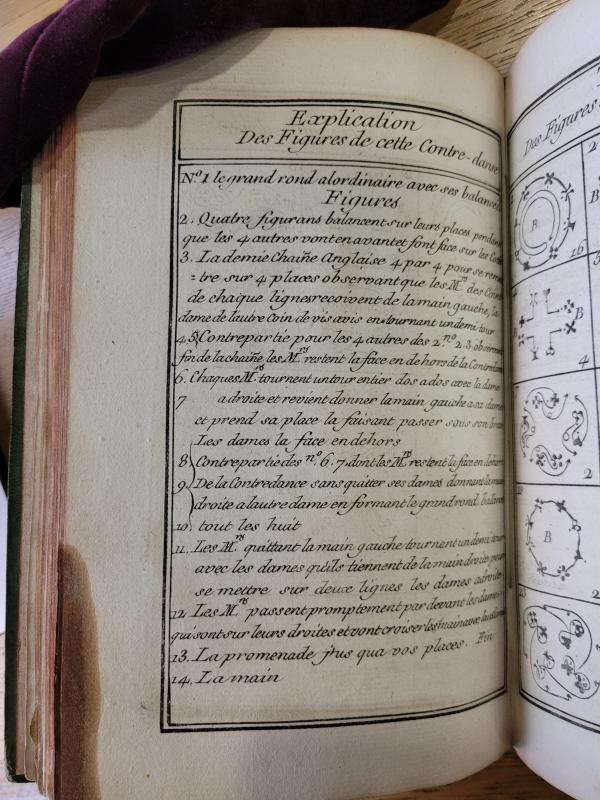 Explication
Des Figures de cette Contre-danse
N.º 1 le grand rond alordinaire avec ses balancés
Figures
2. Quatre figurans balancent sur leurs places pendant
que les 4 autres vont en avant et font face sur les
3. La demie Chaîne Anglaise 4 par 4 pour se remet
=tre sur 4 places observant que les M.rs des Coins
de chaque lignes recoivent de la main gauche, la
dame de lautre Coin de vis avis en tournant un demi tour
4, 5 Contrepartie pour les 4 autres des 2. n.º 2. 3 observant
fin de la chaîne les M.rs restent la face en de hors de la Contredanse
6. Chaques M.rs tournent un tour entier dos a dos avec la dame
7 a droite et revient donner la main gauche a sa dame
et prend sa place la faisant passer sous son bras
Les dames la face en dehors
8 Contrepartie des n.º 6. 7. dont les M.rs restent la face en dehors
9 De la Contredance sans quitter ses dames donnant la main
droite a lautre dame en formant le grand rond, balancé
10. tout les huit
11. Les M.rs quittant la main gauche tournent un demi tour
avec les dames qu'ils tiennent de la main droite pour
se mettre sur deux lignes les dames adroite
12 Les M.rs passent promptement par devant les dames
qui sont sur leurs droites et vont croiser les main avec
13. La promenade jus qua vos places. Fin
14. La main
Des Figures
B
16
4
2
B
2